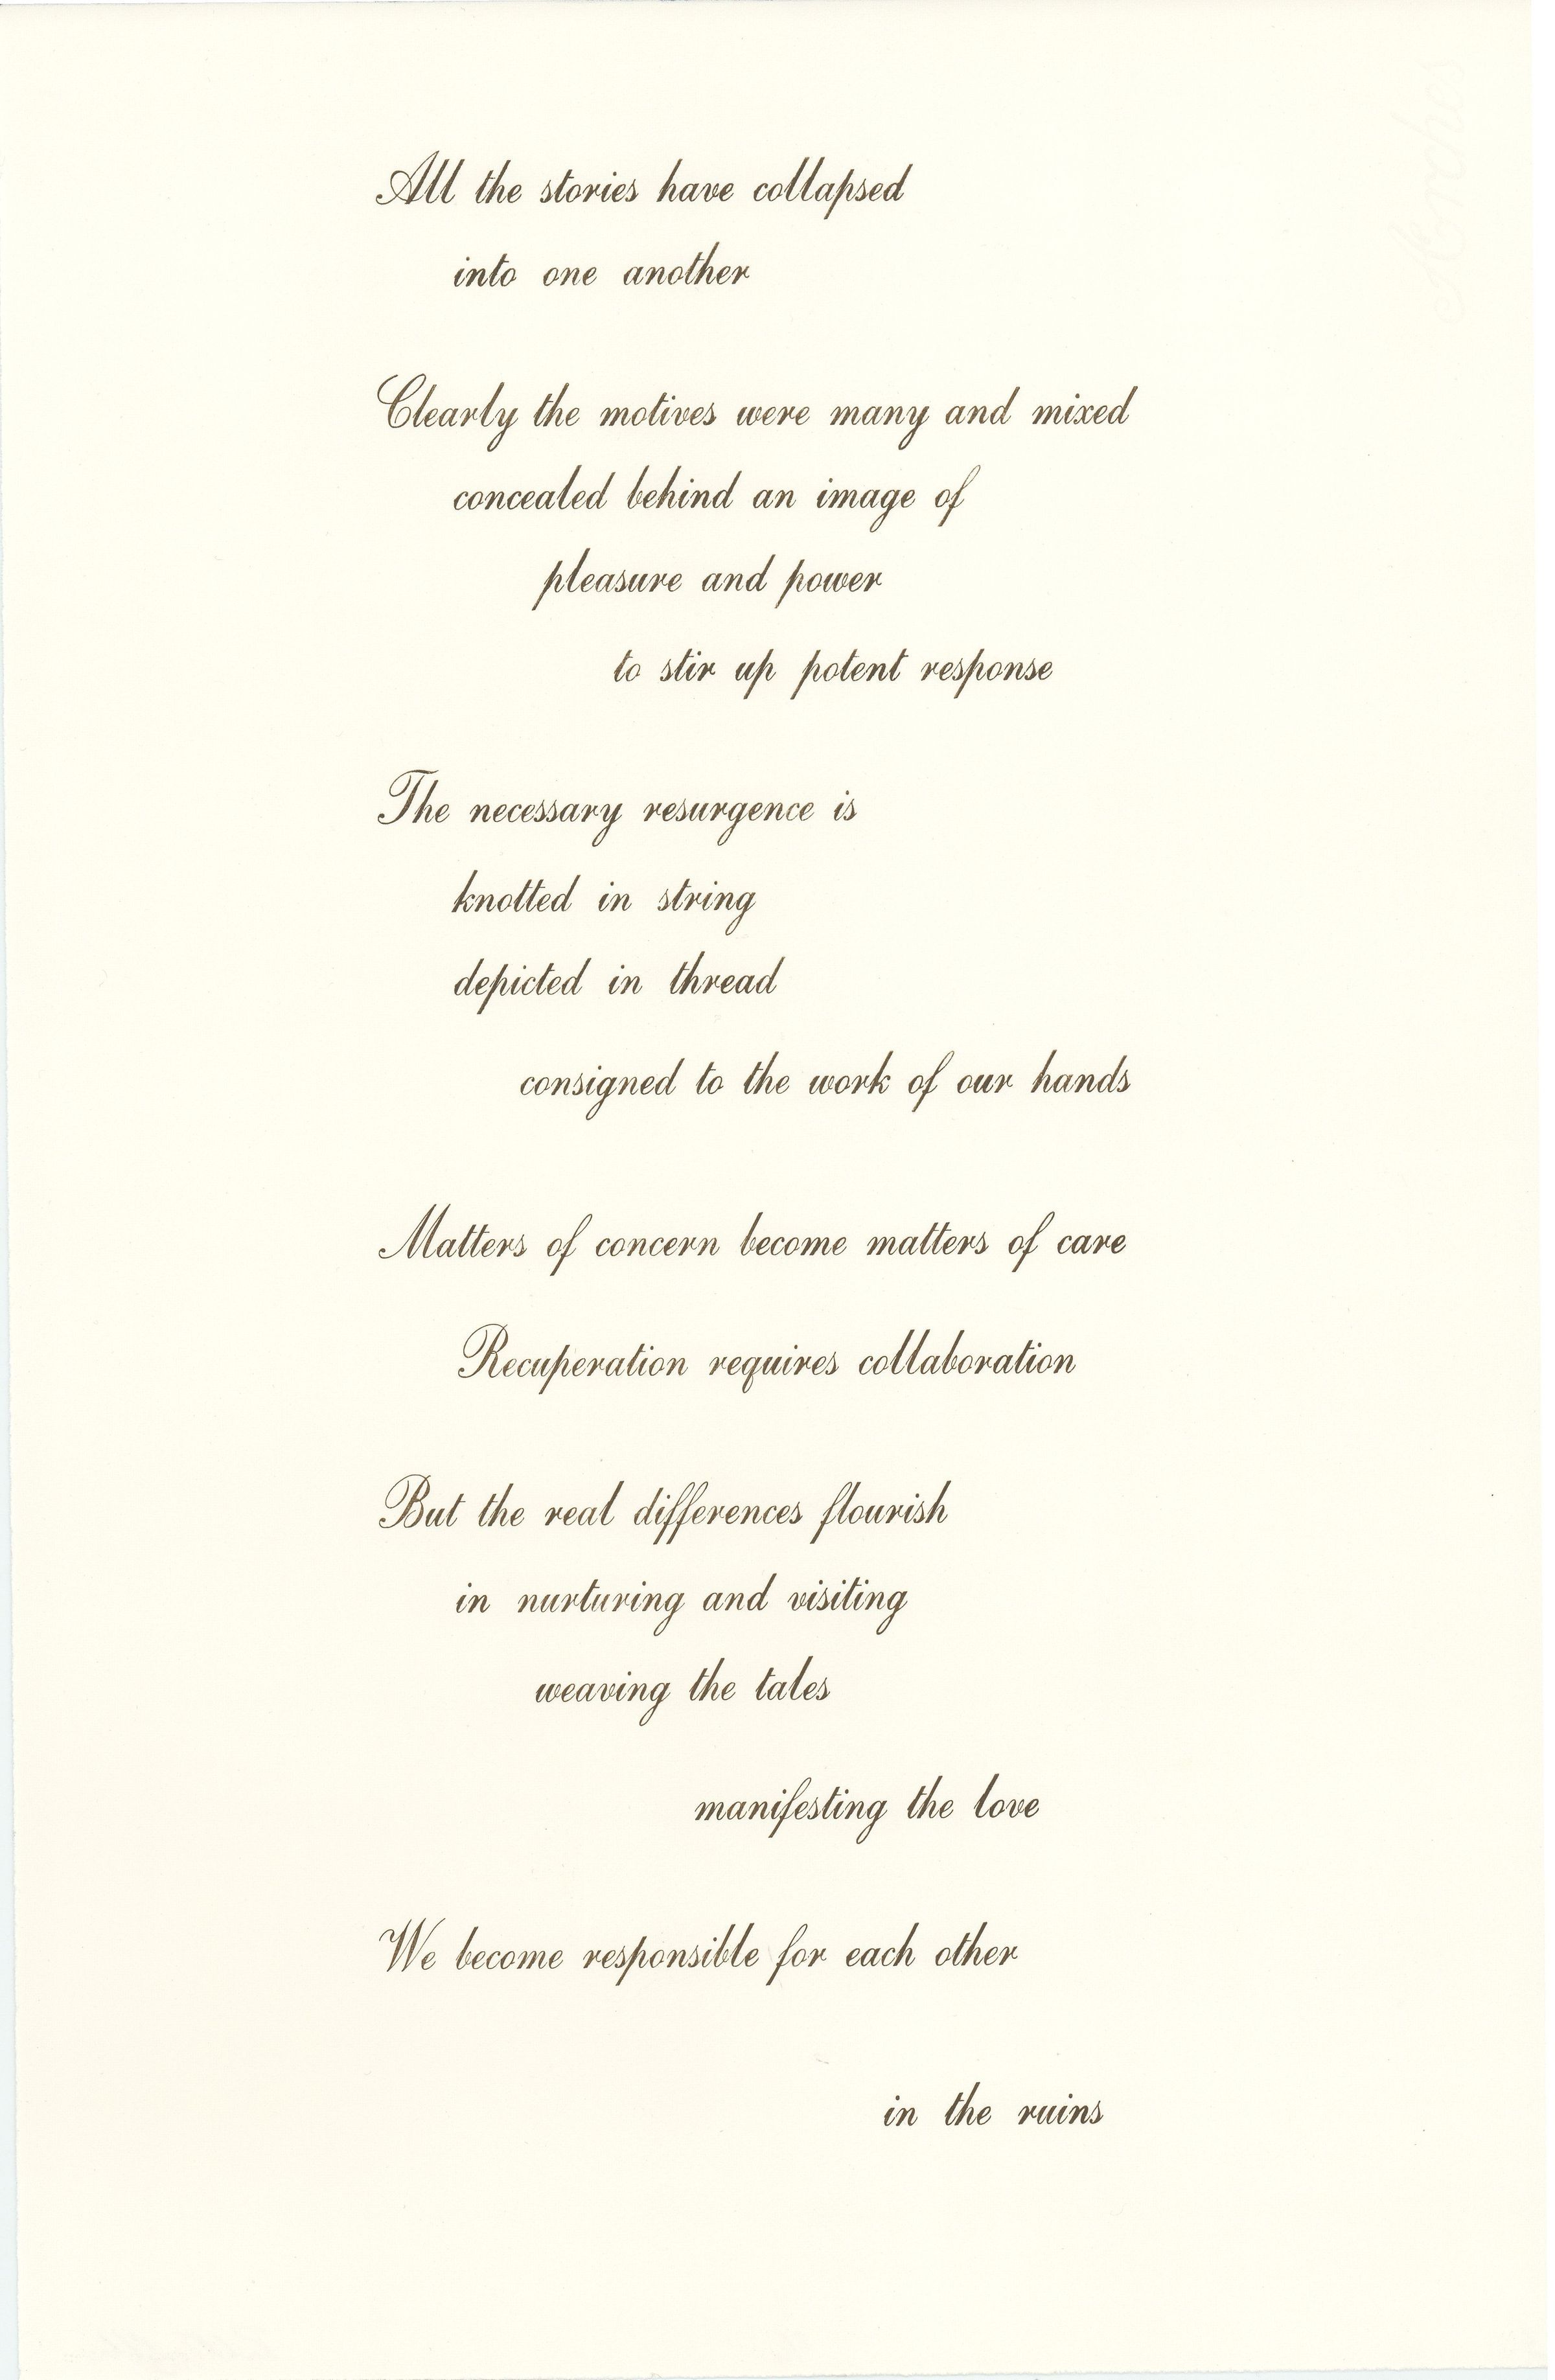 All the stories have collapsed
into one another
Clearly the motives were many and mixed
concealed behind an image of
pleasure and power
to stir up potent response
The necessary resurgence is
knotted in string
depicted in thread
consigned to the work of our hands
Matters of concern become matters of care
Recuperation requires collaboration
But the real differences flourish
in nurturing and visiting
weaving the tales
manifesting the love
We become responsible for each other
in the ruins